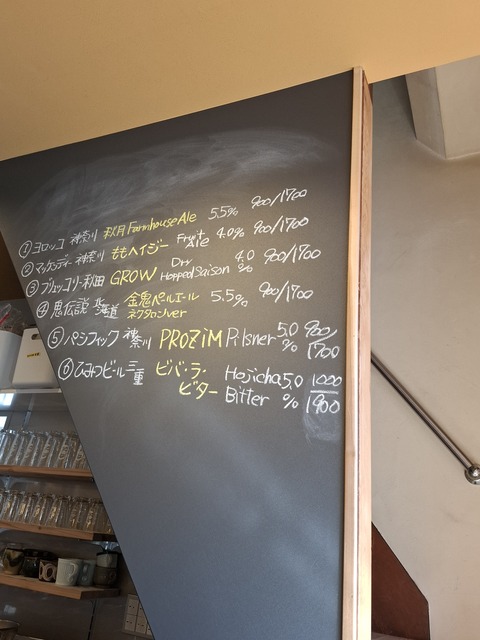 ① ヨロッコ 神奈川 秋月 Farmhouse Ale 5.5% 900/1700
② マッケンディー 神奈川 ももヘイジー Fruit Ale 4.0% 900/1700
③ ブリュッコリー 秋田 GROW Dry Hopped Saison 4.0% 900/1700
④ 鬼伝説 北海道 金鬼ペールエール ネクタロンver 5.5% 900/1700
⑤ パシフィック 神奈川 PROZiM Pilsner 5.0% 900/1700
⑥ ひみつビール 三重 ビバ・ラ・ビター Hojicha Bitter 5.0% 1000/1900